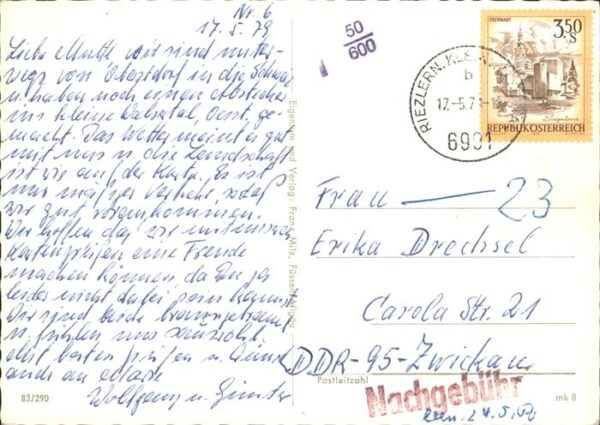 Nr. 6
17. 5. 79
Liebe Mutti wir sind unter-
wegs von Oberstdorf in die Schweiz
u. haben noch einen Abstecher
ins kleine Walsertal, Oest, ge-
macht. Das Wetter meint es gut
mit uns u. die Landschaft
ist wie auf der Karte. Es ist
nur mäßiger Verkehr, sodaß
wir gut vorankommen.
Wir hoffen daß wir mit unseren
Kartengrüßen eine Freude
machen können, da Du ja
leider nicht dabei sein kannst.
Wir sind beide braungebrannt
u. fühlen uns sauwohl.
Mit besten Grüßen u.
auch an
Wolfgang u. Günter
83/290
Eigentum und Verlag: Franz Milz, Füssen/Allgäu
50
600
RIEZLERN, KLE
b
17.-5.79-1
6991
OBERWART
3.50
S
Burgenland
REPUBLIK ÖSTERREICH
Frau — 23
Erika Drechsel
Carola Str. 21
DDR-95-Zwickau
Postleitzahl
Nachgebühr
mk 8